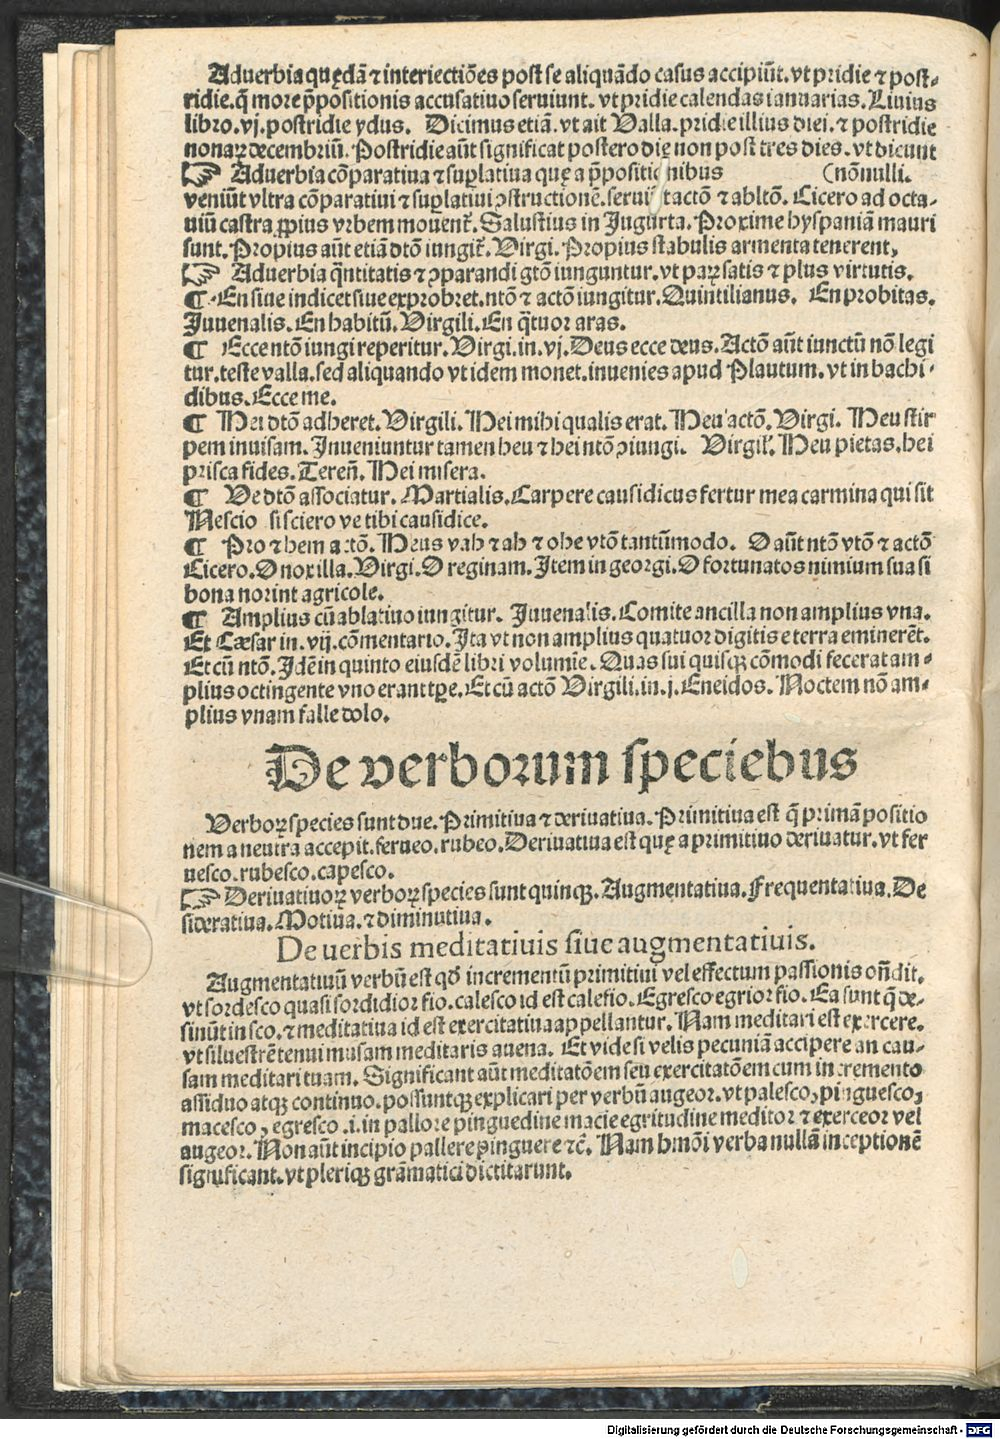 Aduerbia quędã ⁊ interiectiões post se aliquãdo casus accipiũt. vt pridie ⁊ post-
ridie. q̃ more p̃positionis accusatiuo seruiunt. vt pridie calendas ianuarias. Liuius
libro. vj. postridie ydus. Dicimus etiã. vt ait Valla. pridie illius diei. ⁊ postridie
nonaꝝ decembriũ. Postridie aũt significat postero die non post tres dies. vt dicunt
☞ Aduerbia cõparatiua ⁊ suꝑlatiua quę a p̃positionibus (nõnulli.
veniũt vltra cõparatiui ⁊ suꝑlatiui ꝯstructionẽ. seruiũt actõ ⁊ abltõ. Cicero ad octa-
uiũ castra ꝓpius vrbem mouent᷑. Salustius in Jugurta. Proxime hyspaniã mauri
sunt. Propius aũt etiã dtõ iungit᷑. Virgi. Propius stabulis armenta tenerent,
☞ Aduerbia q̃ntitatis ⁊ ꝯparandi gtõ iunguntur. vt paꝝ satis ⁊ plus virtutis.
¶ En siue indicet siue exprobret. ntõ ⁊ actõ iungitur. Quintilianus. En probitas.
Juuenalis. En habitũ. Virgili. En q̃tuor aras.
¶ Ecce ntõ iungi reperitur. Virgi. in. vj. Deus ecce deus. Actõ aũt iunctũ nõ legi
tur. teste valla. sed aliquando vt idem monet. inuenies apud Plautum. vt in bachi-
dibus. Ecce me.
¶ Hei dtõ adheret. Virgili. Hei mihi qualis erat. Heu actõ. Virgi. Heu stir
pem inuisam. Inueniuntur tamen heu ⁊ hei ntõ ꝯiungi. Virgil᷑. Heu pietas. hei
prisca fides. Tereñ. Hei misera.
¶ Ve dtõ associatur. Martialis. Carpere causidicus fertur mea carmina qui sit
Nescio si sciero ve tibi causidice.
¶ Pro ⁊ hem actõ. Heus vah ⁊ ah ⁊ ohe vtõ tantũmodo. O aũt ntõ vtõ ⁊ actõ
Cicero. O nox illa. Virgi. O reginam. Item in georgi. O fortunatos nimium sua si
bona norint agricole.
¶ Amplius cũ ablatiuo iungitur. Juuenalis. Comite ancilla non amplius vna.
Et Cæsar in. vij. cõmentario. Ita vt non amplius quatuor digitis e terra eminerẽt.
Et cũ ntõ. Idẽ in quinto eiusdẽ libri volumine. Quas sui quisqꝫ cõmodi fecerat am-
plius octingente vno erant tꝑe. Et cũ actõ Virgili. in. j. Eneidos. Noctem nõ am-
plius vnam falle dolo.
De verborum speciebus
Verboꝝ species sunt due. Primitiua ⁊ deriuatiua. Primitiua est q̃ primã positio
nem a neutra accepit. ferueo. rubeo. Deriuatiua est quę a primitiuo deriuatur. vt fer
uesco. rubesco. capesco.
☞ Deriuatiuoꝝ verboꝝ species sunt quinqꝫ. Augmentatiua. Frequentatiua. De
sideratiua. Motiua. ⁊ diminutiua.
De uerbis meditatiuis siue augmentatiuis.
Augmentatiuũ verbũ est qđ incrementũ primitiui vel effectum passionis oñdit.
vt sordesco quasi sordidior fio. calesco id est calefio. Egresco egrior fio. Ea sunt q̃ de-
sinũt in sco. ⁊ meditatiua id est exercitatiua appellantur. Nam meditari est exercere.
vt siluestrẽ tenui musam meditaris auena. Et vide si velis pecuniã accipere an cau-
sam meditari tuam. Significant aũt meditatõem seu exercitatõem cum incremento
assiduo atqꝫ continuo. possuntqꝫ explicari per verbũ augeor. vt palesco, pinguesco,
macesco, egresco .i. in pallore pinguedine macie egritudine meditor ⁊ exerceor vel
augeor. Non aũt incipio pallere pinguere ⁊c̃. Nam hmõi verba nullã inceptionẽ
significant. vt pleriqꝫ grãmatici dictitarunt.
Digitalisierung gefördert durch die Deutsche Forschungsgemeinschaft - DFG